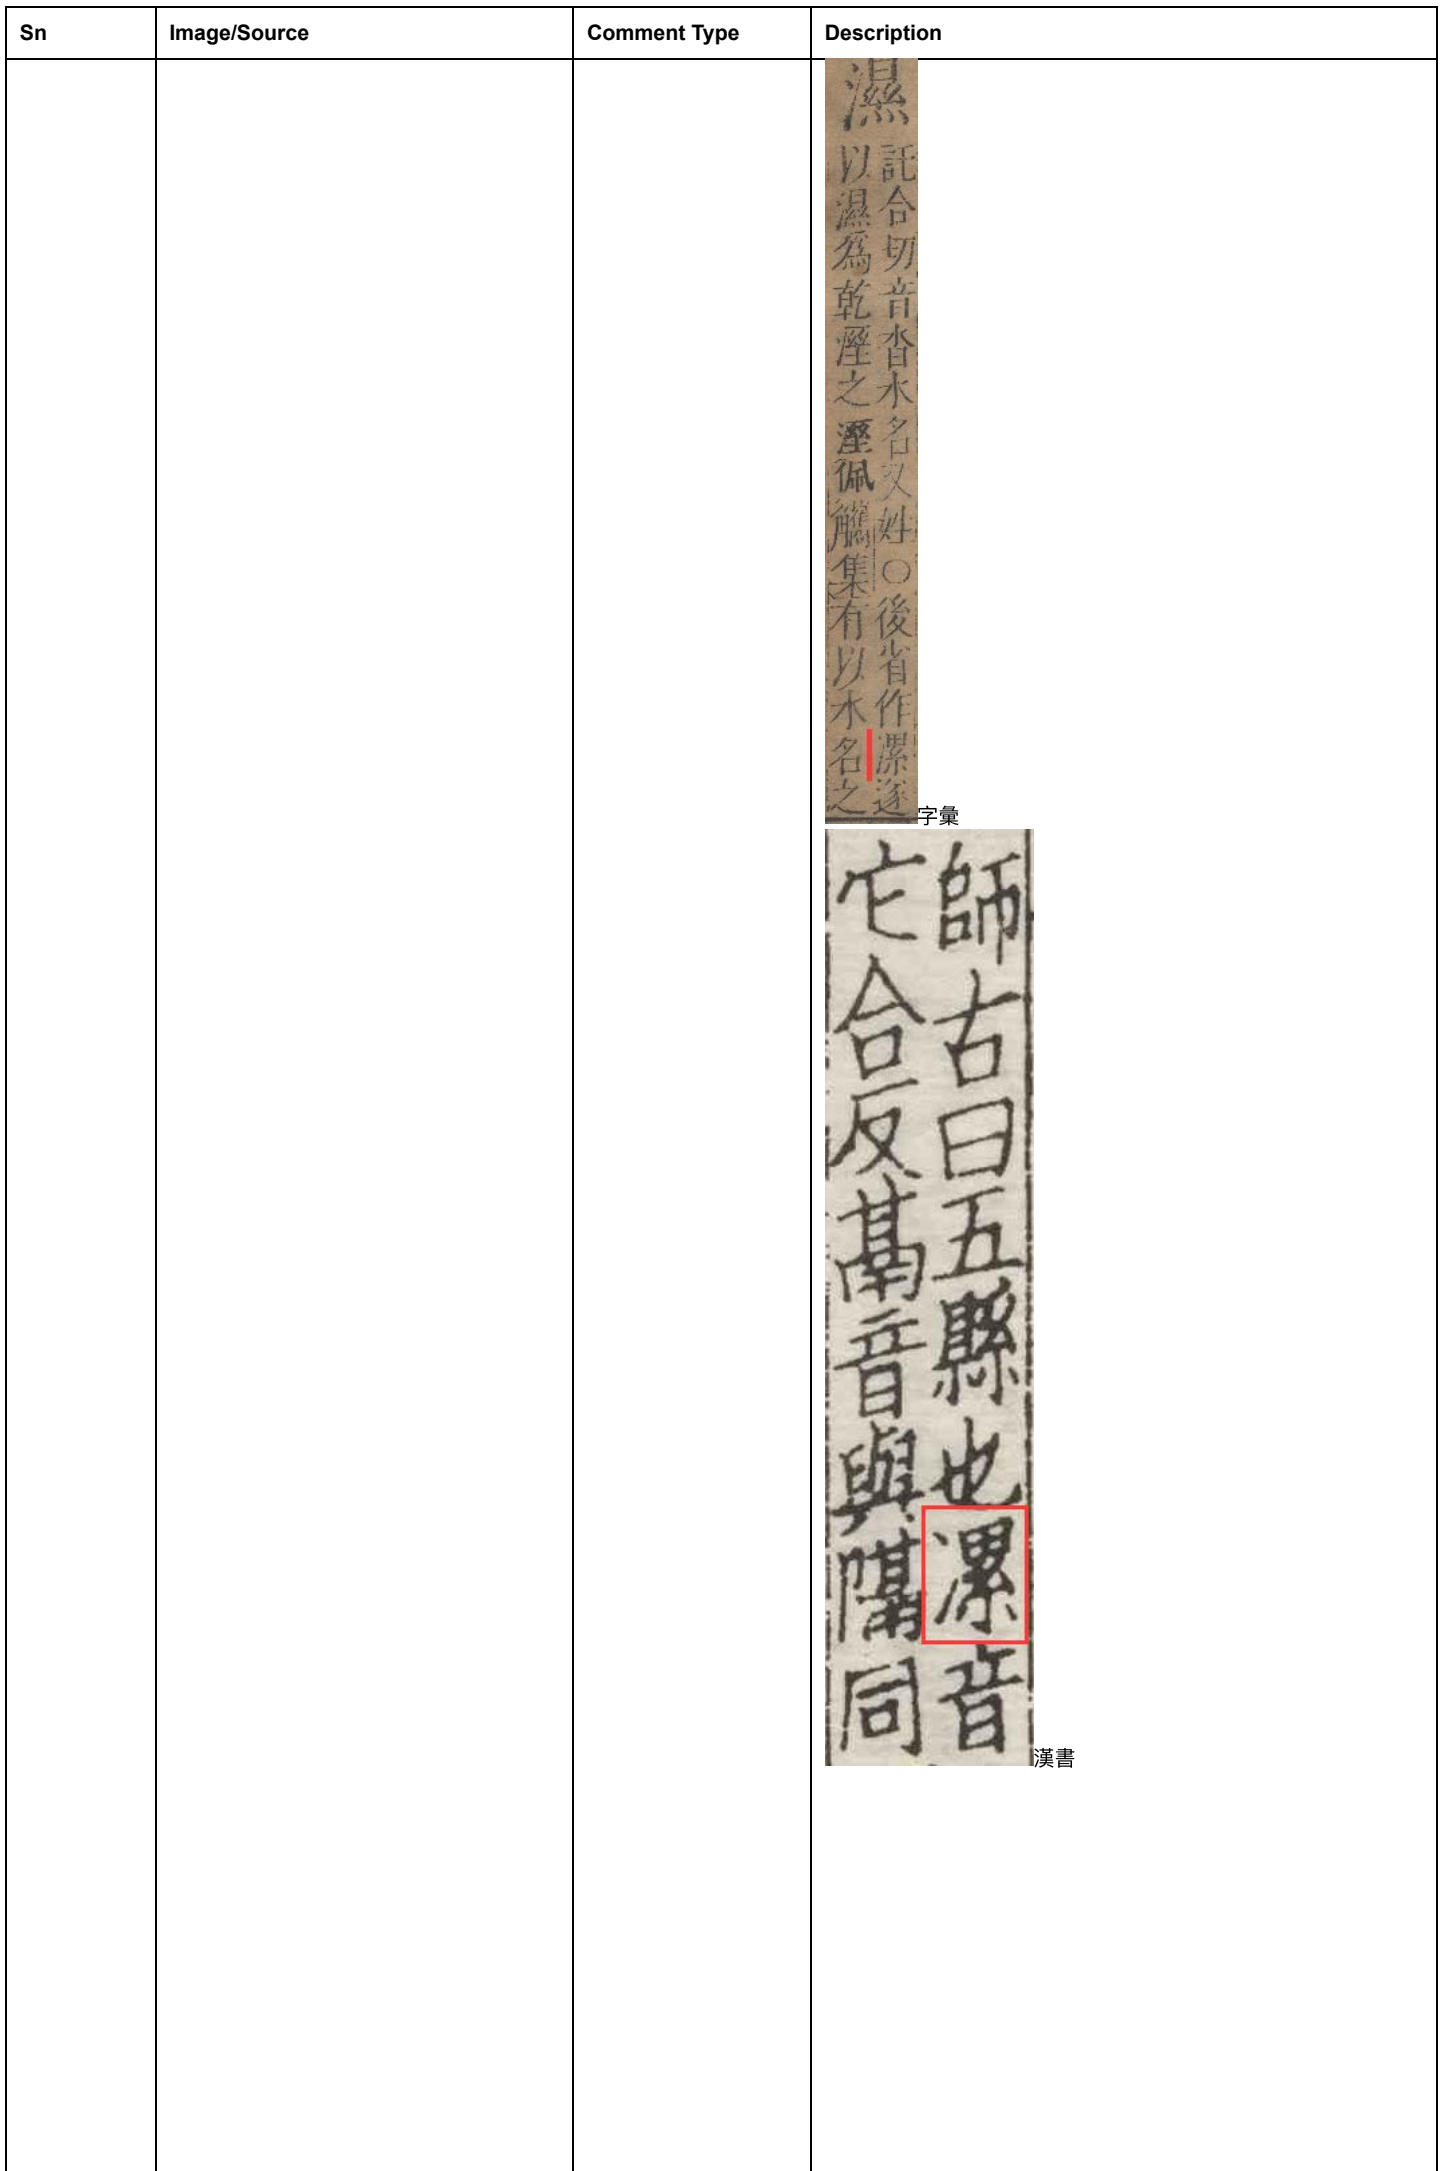 Sn Image/Source Comment Type Description
濕
託合切音沓水名又姓○後省作漯遂
以濕爲乾溼之溼佩觿集有以水名之
字彙
師古曰五縣也漯音
它合反鬲音與隔同
漢書